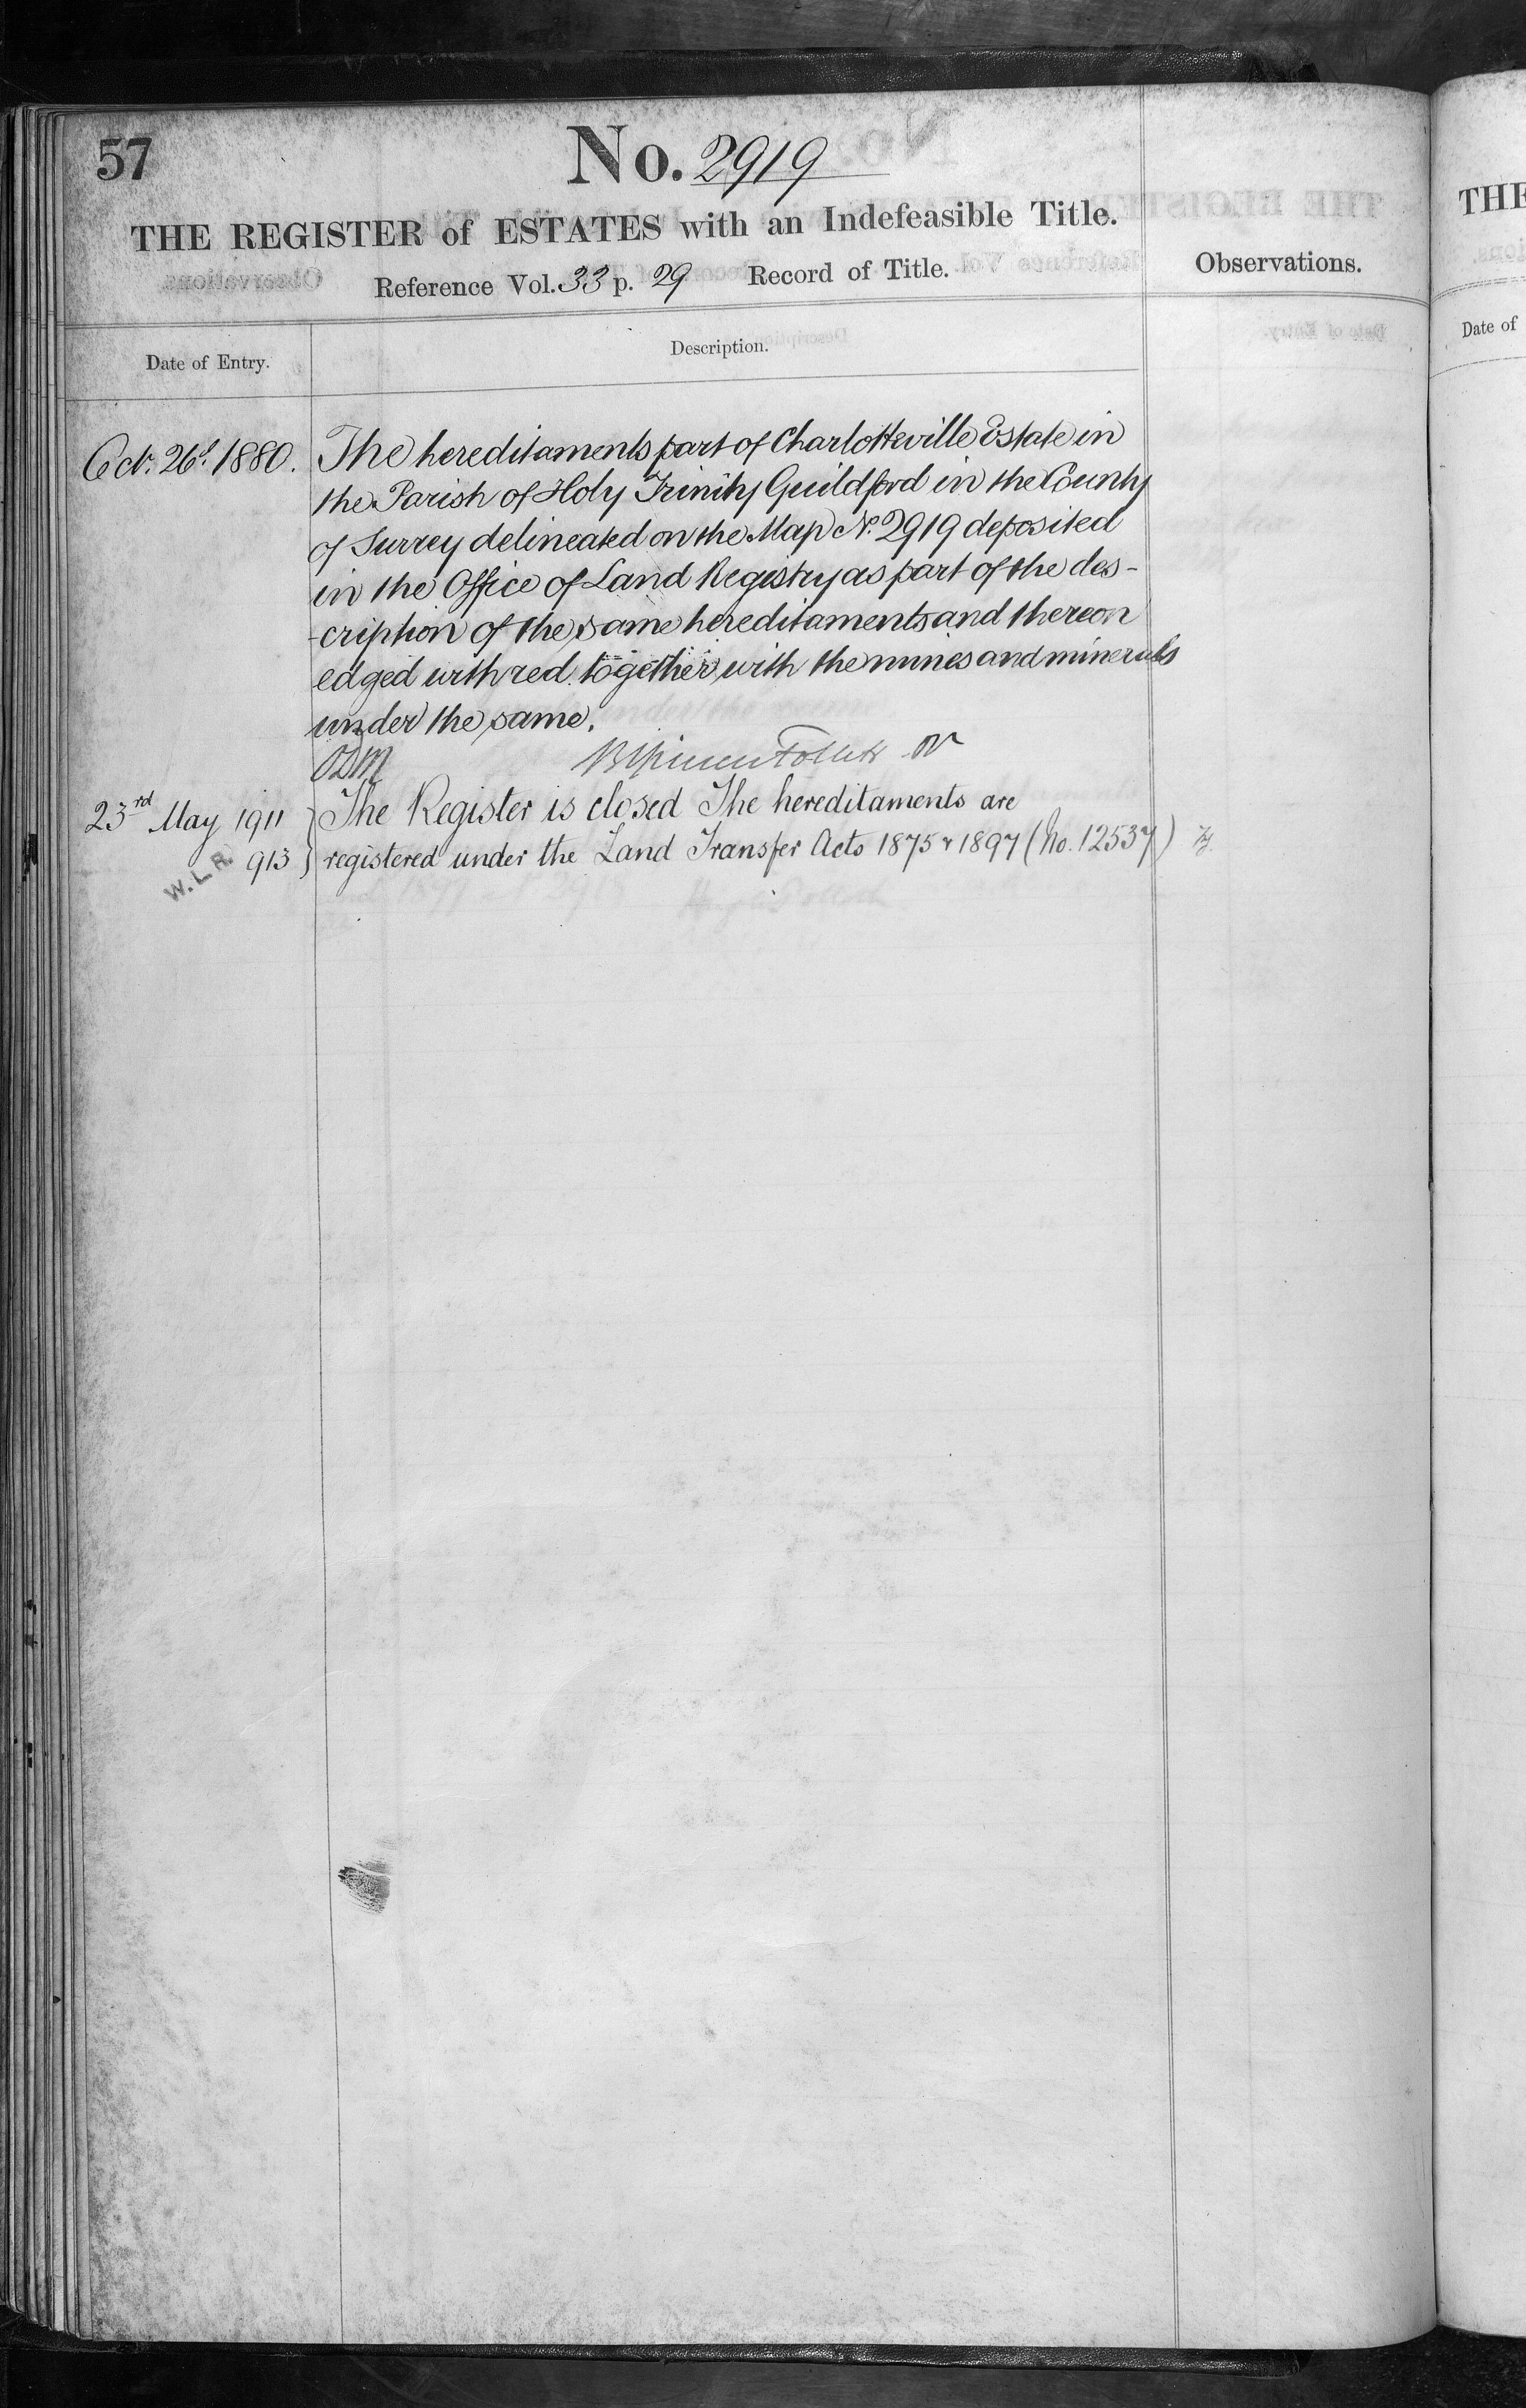 57
No. 2919
THE REGISTER of ESTATES with an Indefeasible Title.
Reference Vol. 33 p. 29 Record of Title.
Observations.
Date of Entry.
Description.
Oct. 26th 1880.
The hereditaments part of Charlotteville Estate in
the Parish of Holy Trinity Guildford in the County
of Surrey delineated on the Map No. 2919 deposited
in the Office of Land Registry as part of the des-
-cription of the same hereditaments and thereon
edged with red together with the mines and minerals
under the same.
23rd May 1911
913
W. L. R.
The Register is closed The hereditaments are
registered under the Land Transfer Acts 1875 & 1897 (No. 12537)
THE
Date of